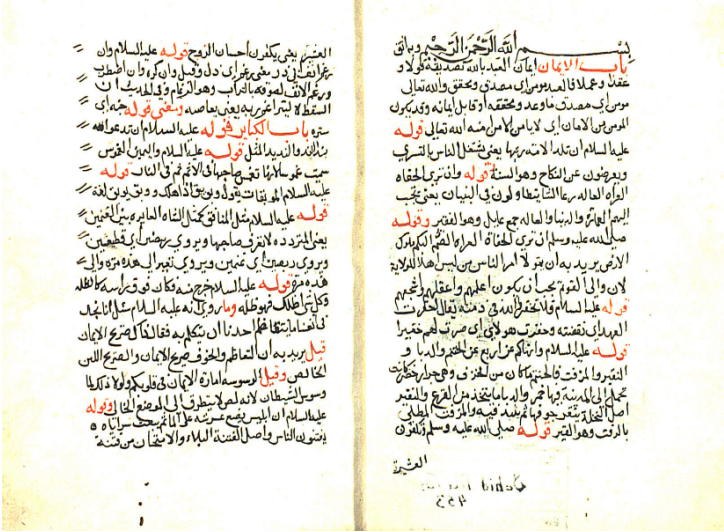 بسم الله الرحمن الرحيم وبه اثق
باب الايمان ايمان العبد بالله تصديقه قولا و
عقدا وعملا فالعبد مومن اي مصدق ومحقق والله تعالى
مومن اي مصدق ما وعد ومحققه او قابل ايمانه وقد يكون
المومن من الامان اي لا يامن الا من امنه الله تعالى قوله
عليه السلام ان تلد الامة ربها يعني يشتغل الناس بالتسري
ويعرضون عن النكاح وهو السنة قوله وان ترى الحفاة
العراة العالة رعا الشا يتطاولون في البنيان يعني تحب
اليهم العمارة والدنيا والعالة جمع عايل وهو الفقير وقوله
صلى الله عليه وسلم ان ترى الحفاة العراة الصم البكم ملوك
الارض يريد به ان يتولا امر الناس من ليس اهلا للولاية
لان والي القوم يجب ان يكون اعلمهم واعقلهم
قوله عليه السلام فلا تخفروا الله في ذمته يقال اخفرت
العهد اي نقضته وخفرت هولاي اي صرت لهم خفيرا
قوله عليه السلام وانهاكم عن اربع عن الحنتم والدبا و
النقير والمزفت فالحنتم ما كان من الخزف وهي جرار خضر كانت
تحمل الى المدينة فيها خمر والدبا ما يتخذ من القرع والنقير
اصل النخلة ينقر جوفها ثم ينبذ فيه والمزفت المطلي
بالزفت وهو القير قوله صلى الله عليه وسلم وتكفرن
العشيرة
455
العشير يعني يكفرون احسان الزوج قوله عليه السلام وان
رغم انف ابي ذر معنى رغم اي ذل وقيل وان كره وان اضطرب
ورغم الانف لصوقه بالتراب وهو الرغام وفي الحديث ان
السقط ربه يعني يعاصه ومعنى قوله جنه اي
ستره باب الكباير قوله عليه السلام ان تدعو لله
ندا الند والنديد المثل قوله عليه السلام واليمين الغموس
سميت غموسا لانها تغمس صاحبها في الاثم ثم في النار قوله
عليه السلام الموبقات يقول وبق يبق اذا هلك ووبق يوبق لغة
قوله عليه السلام مثل المنافق كمثل الشاة العايرة بين الغنمين
يعني المترددة لا تعرف صاحبها ويروى ربضين اي قطيعين
ويروى ربيضين اي غنمين ويروى تعير الى هذه مرة والى
هذه مرة قوله عليه السلام خرج منه وكان فوق راسه كالظلة
وكل شي اظلك فهو ظلة وما روي انه عليه السلام سئل انا نجد
في انفسنا ما يتعاظم احدنا ان يتكلم به فقال ذاك صريح الايمان
قيل يريد به ان التعاظم والخوف صريح الايمان والصريح اللبن
الخالص وقيل الوسوسة امارة الايمان في قلوبكم ولولا ذلك لما
وسوس الشيطان لانه لص لا يتطرق الى الموضع الخالي وقوله
عليه السلام ان ابليس يضع عرشه على الماء ثم يبعث سراياه
يفتنون الناس واصل الفتنة البلاء والامتحان من فتنة